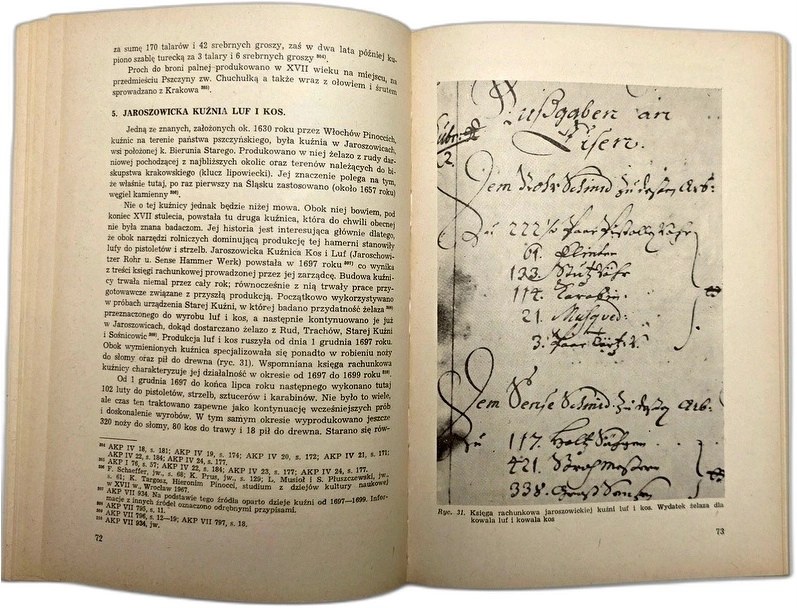 za sumę 170 talarów i 42 srebrnych groszy, zaś w dwa lata później ku-
piono szablę turecką za 3 talary i 6 srebrnych groszy
Proch do broni palnej produkowano w XVII wieku na miejscu, na
przedmieściu Pszczyny zw. Chuchułką a także wraz z ołowiem i śrutem
sprowadzano z Krakowa
5. JAROSZOWICKA KUŹNIA LUF I KOS.
Jedną ze znanych, założonych ok. 1630 roku przez Włochów Pinoccich,
kuźnic na terenie państwa pszczyńskiego, była kuźnia w Jaroszowicach,
wsi położonej k. Bierunia Starego. Produkowano w niej żelazo z rudy dar-
niowej pochodzącej z najbliższych okolic oraz terenów należących do bi-
skupstwa krakowskiego (klucz lipowiecki). Jej znaczenie polega na tym,
że właśnie tutaj, po raz pierwszy na Śląsku zastosowano (około 1657 roku)
węgiel kamienny
Nie o tej kuźnicy jednak będzie niżej mowa. Obok niej bowiem, pod
koniec XVII stulecia, powstała tu druga kuźnica, która do chwili obecnej
nie była znana badaczom. Jej historia jest interesująca głównie dlatego,
że obok narzędzi rolniczych dominującą produkcję tej hamerni stanowiły
lufy do pistoletów i strzelb. Jaroszowicka Kuźnica Kos i Luf (Jaroschowi-
tzer Rohr u. Sense Hammer Werk) powstała w 1697 roku co wynika
z treści księgi rachunkowej prowadzonej przez jej zarządcę. Budowa kuźni-
cy trwała niemal przez cały rok; równocześnie z nią trwały prace przy-
gotowawcze związane z przyszłą produkcją. Początkowo wykorzystywano
w próbach urządzenia Starej Kuźni, w której badano przydatność żelaza
przeznaczonego do wyrobu luf i kos, a następnie kontynuowano je już
w Jaroszowicach, dokąd dostarczano żelazo z Rud, Trachów, Starej Kuźni
i Sośnicowic Produkcja luf i kos ruszyła od dnia 1 grudnia 1697 roku.
Obok wymienionych kuźnica specjalizowała się ponadto w robieniu noży
do słomy oraz pił do drewna (ryc. 31). Wspomniana księga rachunkowa
kuźnicy charakteryzuje jej działalność w okresie od 1697 do 1699 roku
Od 1 grudnia 1697 do końca lipca roku następnego wykonano tutaj
102 lufy do pistoletów, strzelb, sztucerów i karabinów. Nie było to wiele,
ale czas ten traktowano zapewne jako kontynuację wcześniejszych prób
i doskonalenie wyrobów. W tym samym okresie wyprodukowano jeszcze
320 noży do słomy, 80 kos do trawy i 18 pił do drewna. Starano się rów-
AKP IV 18, s. 181; AKP IV 19, s. 174; AKP IV 20, s. 172; AKP IV 21, s. 171;
AKP IV 22, s. 184; AKP IV 24, s. 177.
AKP I 76, s. 57; AKP IV 22, s. 184; AKP IV 23, s. 177; AKP IV 24, s. 177.
F. Schaeffer, jw., s. 68; K. Prus, jw., s. 129; L. Musioł i S. Płuszczewski, jw.,
s. 61; K. Targosz, Hieronim Pinocci, studium z dziejów kultury naukowej
w XVII w., Wrocław 1967.
AKP VII 934. Na podstawie tego źródła oparto dzieje kuźni od 1697—1699. Infor-
macje z innych źródeł oznaczono odrębnymi przypisami.
AKP VII 795, s. 11.
AKP VII 796, s. 12—19; AKP VII 797, s. 18.
AKP VII 934, jw.
72
Außgaben an
Eisen.
Dem Rohr Schmid zu
Zu 222
61. Flinten
123.
114. Carabin
21. Musqued
3. Paar
Dem Sense Schmid zu
Zu 117.
421.
338.
Ryc. 31. Księga rachunkowa jaroszowickiej kuźni luf i kos. Wydatek żelaza dla
kowala luf i kowala kos
73